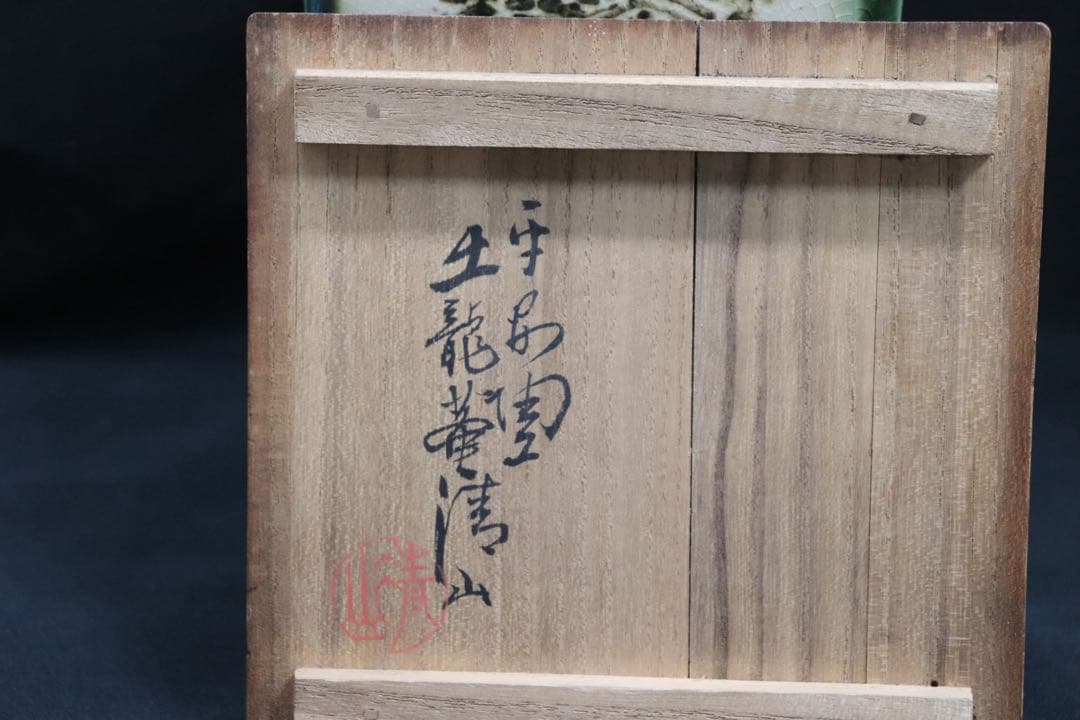 平安陶工
土龍菴清山
清山